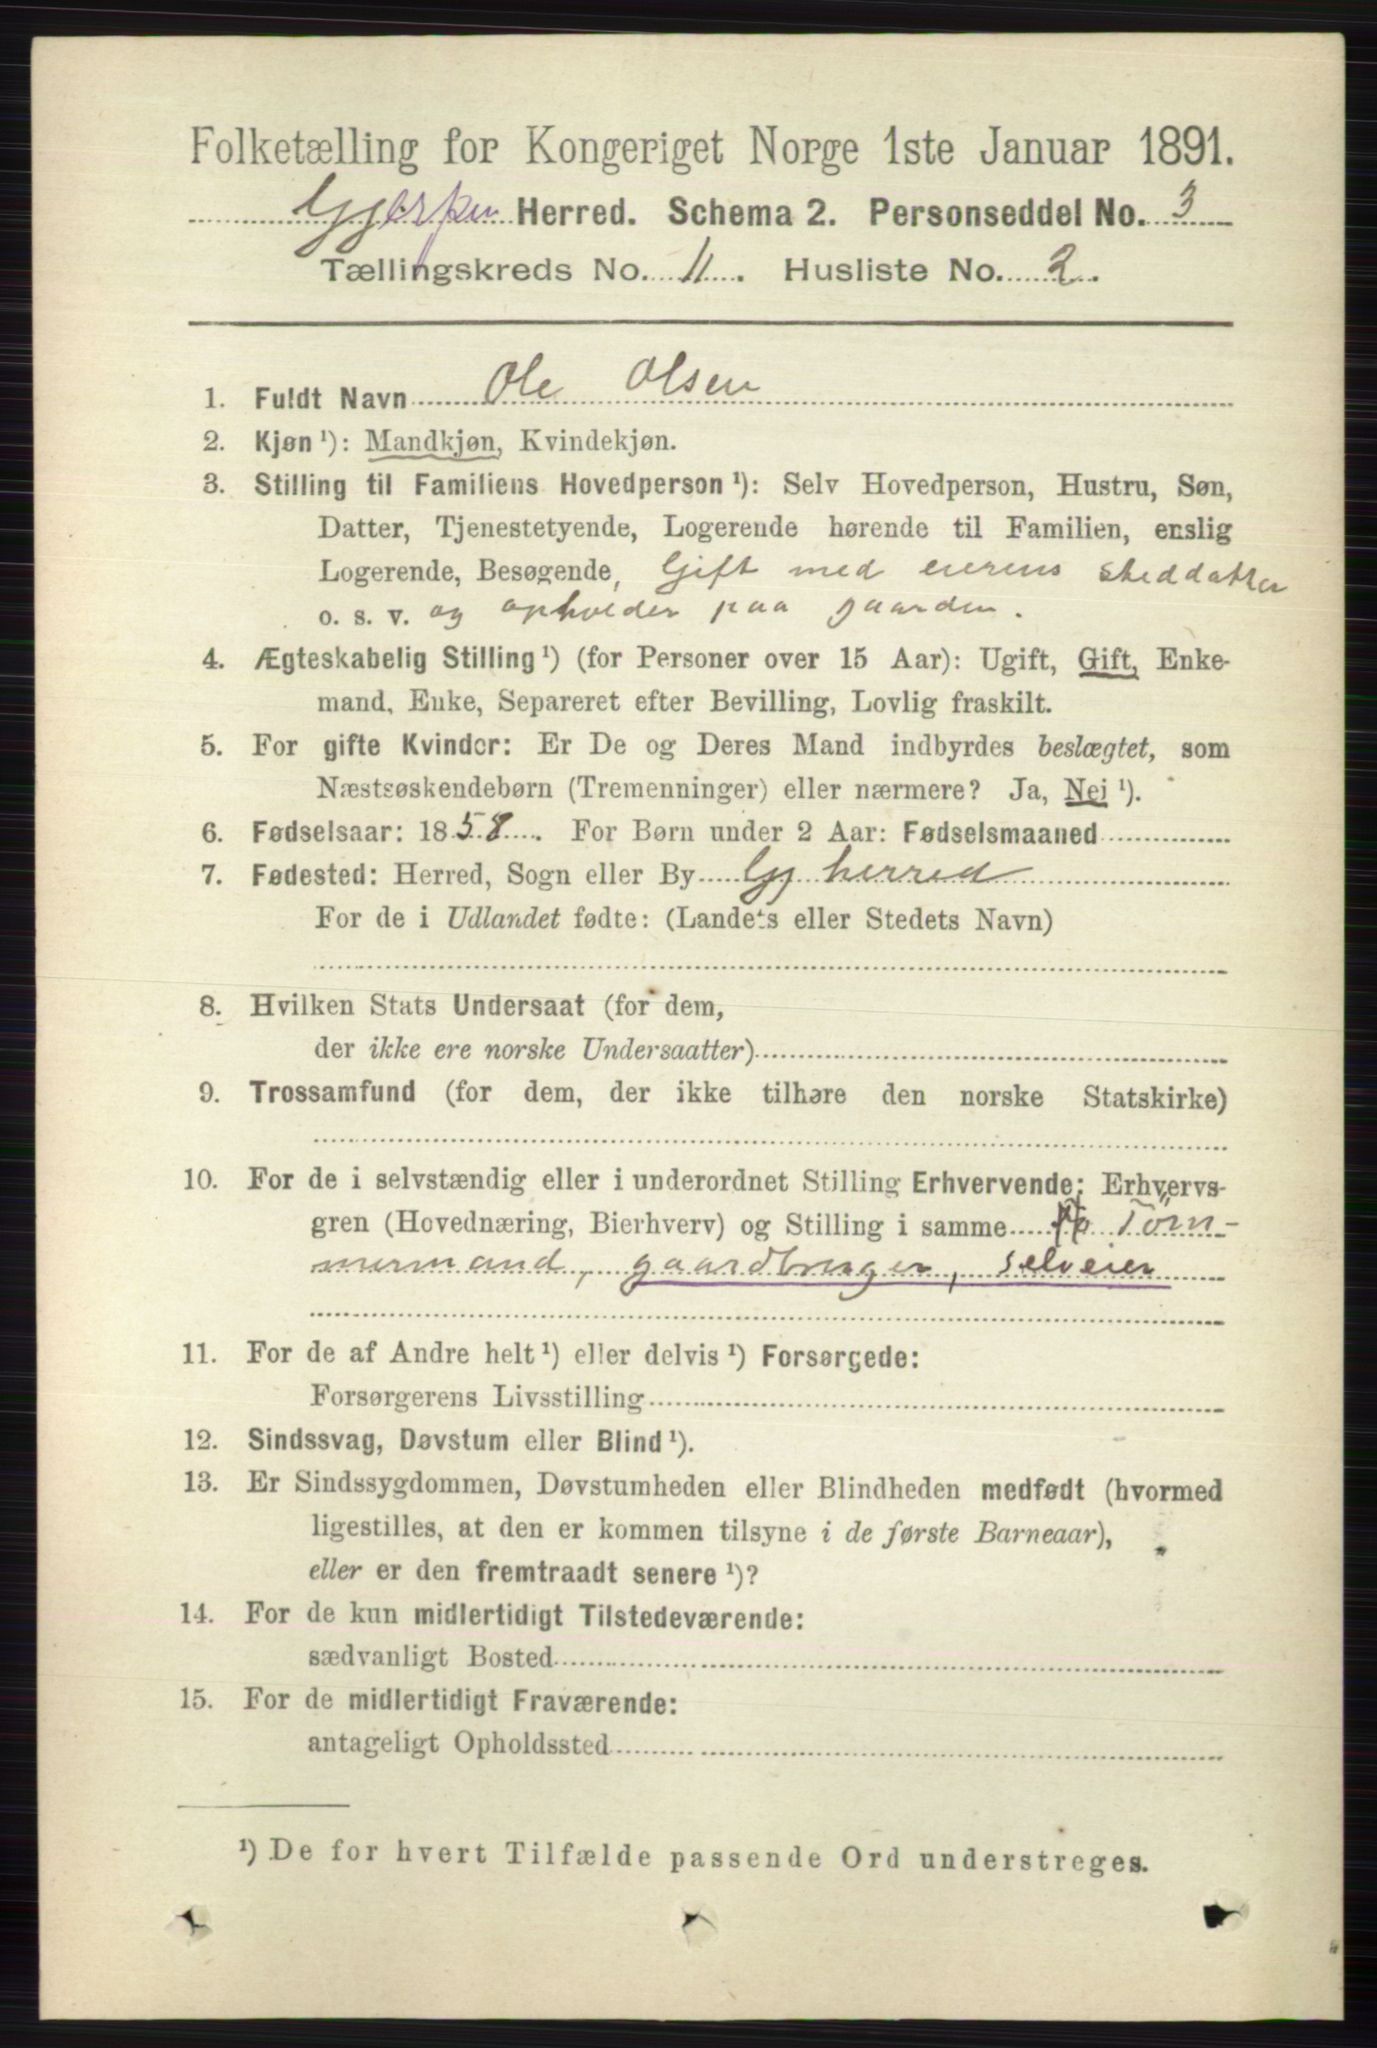 Folketælling for Kongeriget Norge 1ste Januar 1891.
Gjerpen Herred. Schema 2. Personseddel No. 3
Tællingskreds No. 11. Husliste No. 2.
1. Fuldt Navn Ole Olsen
2. Kjøn ¹): Mandkjøn, Kvindekjøn.
3. Stilling til Familiens Hovedperson ¹): Selv Hovedperson, Hustru, Søn,
Datter, Tjenestetyende, Logerende hørende til Familien, enslig
Logerende, Besøgende, Gift med eierens steddatter
o. s. v. og opholder paa gaarden.
4. Ægteskabelig Stilling ¹) (for Personer over 15 Aar): Ugift, Gift, Enke-
mand, Enke, Separeret efter Bevilling, Lovlig fraskilt.
5. For gifte Kvinder: Er De og Deres Mand indbyrdes beslægtet, som
Næstsøskendebørn (Tremenninger) eller nærmere? Ja, Nei ¹).
6. Fødselsaar: 1858. For Børn under 2 Aar: Fødselsmaaned
7. Fødested: Herred, Sogn eller By Gj herred
For de i Udlandet fødte: (Landets eller Stedets Navn)
8. Hvilken Stats Undersaat (for dem,
der ikke ere norske Undersaatter)
9. Trossamfund (for dem, der ikke tilhøre den norske Statskirke)
10. For de i selvstændig eller i underordnet Stilling Erhvervende: Erhvervs-
gren (Hovednæring, Bierhverv) og Stilling i samme Töm-
mermand, gaardbruger, selveier
11. For de af Andre helt ¹) eller delvis ¹) Forsørgede:
Forsørgerens Livsstilling
12. Sindssvag, Døvstum eller Blind ¹).
13. Er Sindssygdommen, Døvstumheden eller Blindheden medfødt (hvormed
ligestilles, at den er kommen tilsyne i de første Barneaar),
eller er den fremtraadt senere ¹)?
14. For de kun midlertidigt Tilstedeværende:
sædvanligt Bosted
15. For de midlertidigt Fraværende:
antageligt Opholdssted
¹) De for hvert Tilfælde passende Ord understreges.